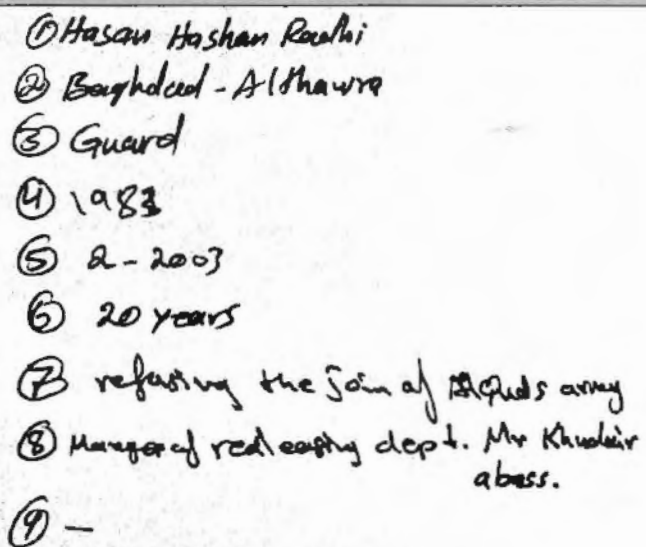 ① Hasan Hashan Radhi
② Baghdad - Althawra
③ Guard
④ 1983
⑤ 2 - 2003
⑥ 20 years
⑦ refusing the join of Alquds army
⑧ Manger of realeasing dept. Mr Khudair
abass.
⑨ —